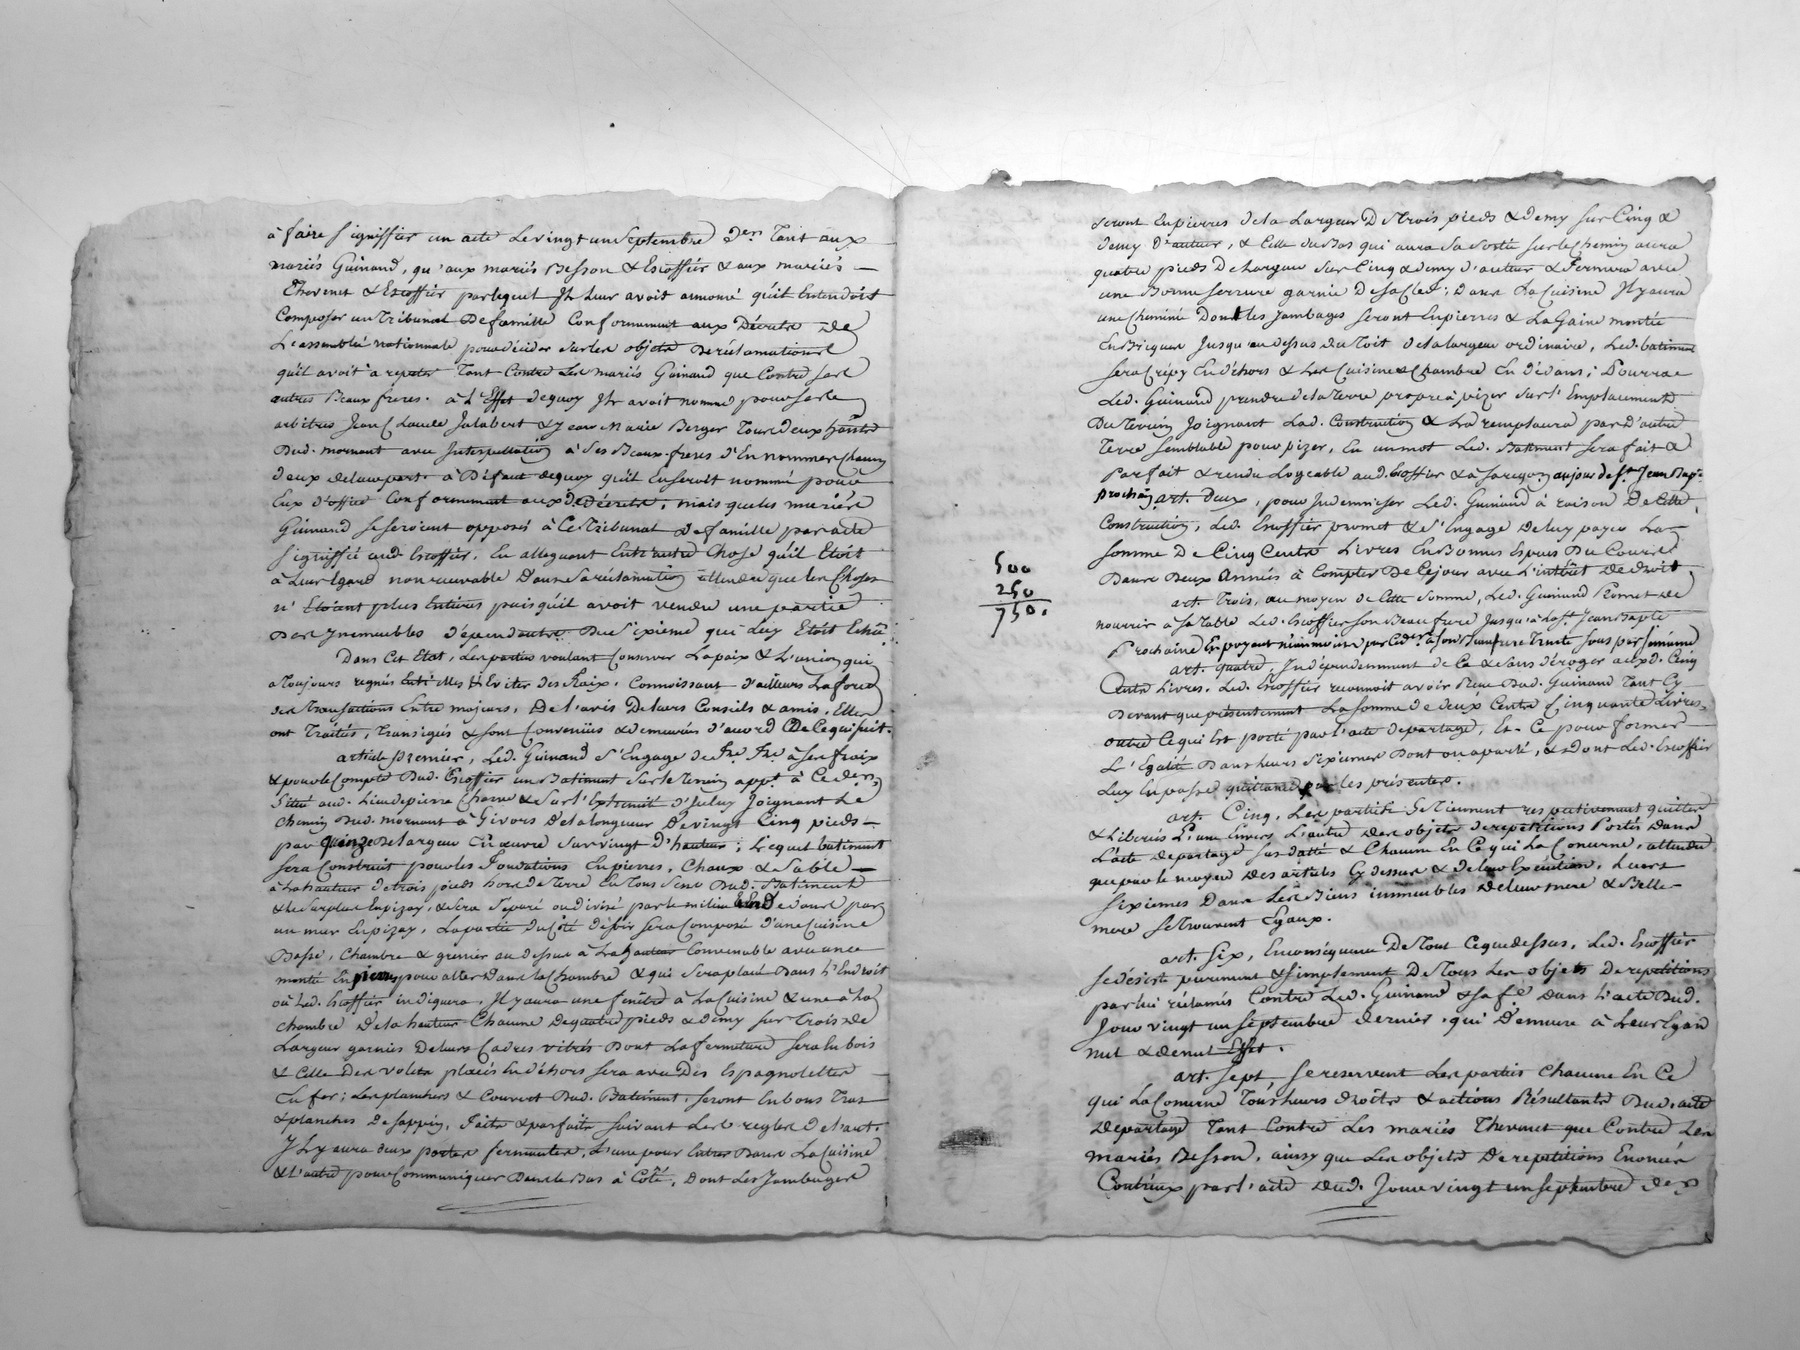 à faire signiffier un acte le vingt un septembre d.er tant aux
mariés Guinand, qu'aux mariés Besson & Escoffier & aux mariés
Thevenet & Escoffier par lequel il leur avoit annoncé qu'il entendoit
composer un tribunal de famille conformement aux décrets de
l'assemblée nationnale pour décider sur les objets de réclamations
qu'il avoit à repeter tant contre les mariés Guinand que contre ses
autres beaux freres. à l'effet de quoy il avoit nommé pour ses
arbitres Jean Claude Jalabert & Jean Marie Berger tous deux
dud. mornant avec interpellation à ses beaux-freres d'en nommer chacun
deux de leur part. à défaut de quoy qu'il en seroit nommé pour
eux d'office conformement auxd. décrets, mais que les mariés
Guinand se seroient opposés à ce tribunal de famille par acte
signiffié aud. Escoffier, en alleguant entr'autre chose qu'il etoit
à leur egard non recevable dans sa réclamation attendu que les choses
n'etoient plus entieres puisqu'il avoit vendu une partie
des immeubles dépendants du sixieme qui luy etoit echu.
Dans cet etat, les parties voulant conserver la paix & l'union qui
a toujours regnés entr'elles & eviter des fraix, connoissant d'ailleurs la force
des transactions entre majeurs, de l'avis de leurs conseils & amis, elles
ont traités, transigés & sont convenües & demeurées d'accord de ce qui suit.
article premier, led. Guinand s'engage de f.re f.re à ses fraix
& pour le compte dud. Escoffier un batiment sur le terrein app.t à ce der.
situé aud. lieu de pierre & sur l'extremité d'iceluy joignant le
chemin dud. mornant à Givors de la longueur de vingt cinq pieds
par quinze de largeur en œuvre sur vingt d'hauteur; lequel batiment
sera construit pour les fondations en pierres, chaux & sable
à la hauteur de trois pieds hors de terre en tous sens dud. batiment
& le surplus en pizay, & sera séparé ou divisé par le milieu par
un mur en pizay, la partie du côté de bise sera composé d'une cuisine
basse, chambre & grenier au dessus à la hauteur convenable avec une
monté en pierres pour aller dans la chambre & qui sera placé dans l'endroit
où led. Escoffier indiquera, il y aura une fenêtre à la cuisine & une à la
chambre de la hauteur chacune de quatre pieds & demy sur trois de
largeur garnies de leurs cadres vitrés dont la fermeture sera en bois
& celle des volets placés en déhors sera avec des espagnolettes
en fer; les planchers & couvert dud. batiment, seront en bons tras
& planches de sappin, faits & parfaits suivant les regles de l'art.
Il y aura deux portes fermantes, l'une pour entrer dans la cuisine
& l'autre pour communiquer dans le bas à côté, dont les jambages
seront en pierres de la largeur de trois pieds & demy sur cinq &
demy d'auteur, & celle du bas qui aura sa sortie sur le chemin aura
quatre pieds de largeur sur cinq & demy d'auteur & fermera avec
une bonne serrure garnie de sa clef; dans la cuisine il y aura
une cheminé dont les jambages seront en pierres & la gaine montée
en briques jusqu'au dessus du toit de la largeur ordinaire, led. batiment
sera crépy en déhors & les cuisine & chambre en dédans; pourra
led. Guinand prendre de la terre propre à pizer sur l'emplacement
du terrein joignant lad. construction & la remplacera par d'autre
terre semblable pour pizer, en un mot led. batiment sera fait &
parfait & rendu logeable aud. Escoffier & à sa reqon au jour de S.t Jean Bap.e
prochain. art. deux, pour indemniser led. Guinand à raison de cette
construction, led. Escoffier promet & s'engage de luy payer la
somme de cinq cents livres en bonnes especes du cours
dans deux années à compter de ce jour avec l'intérêt de droit.
500
250
750.
art. trois, au moyen de cette somme, led. Guinand promet de
nourrir à sa table led. Escoffier son beau frere jusqu'à la S.t Jean Bapte
prochaine en payant néanmoins par ce der. à son beau frere trente sous par semaine
art. quatre, indépendemment de ce & sans déroger auxd. cinq
cents livres, led. Escoffier reconnoit avoir reçu dud. Guinand tant cy
devant que présentement la somme de deux cents cinquante livres,
outre ce qui est porté par l'acte de partage, et ce pour former
l'egalité dans leurs sixiemes dont on a parlé, & dont led. Escoffier
luy en passe quittance par les présentes.
art. cinq, les parties se tiennent respectivement quittes
& liberés l'une envers l'autre des objets de repetitions portés dans
l'acte de partage sus datté & chacune en ce qui la concerne, attendu
que par le moyen des articles cy dessus & de leur exécution, leurs
sixiemes dans les biens immeubles de leur mere & belle-
mere se trouvent egaux.
art. six, en conséquence de tout ce que dessus, led. Escoffier
se désiste purement & simplement de tous les objets de repetitions
par lui réclamés contre led. Guinand & sa f.e dans l'acte dud.
jour vingt un septembre dernier, qui demeure à leur egard
nul & de nul effet.
art. sept, se reservent les parties chacune en ce
qui la concerne tous leurs droits & actions résultants dud. acte
de partage tant contre les mariés Thevenet que contre les
mariés Besson, ainsy que les objets de repetitions enoncés
contr'eux par l'acte dud. jour vingt un septembre der.